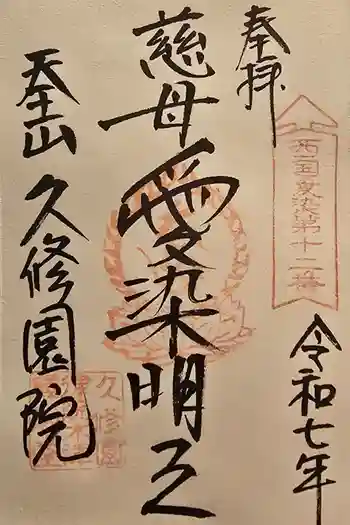 奉拝
西国愛染第十二番
令和七年
慈母愛染明王
天王山 久修園院
久修園